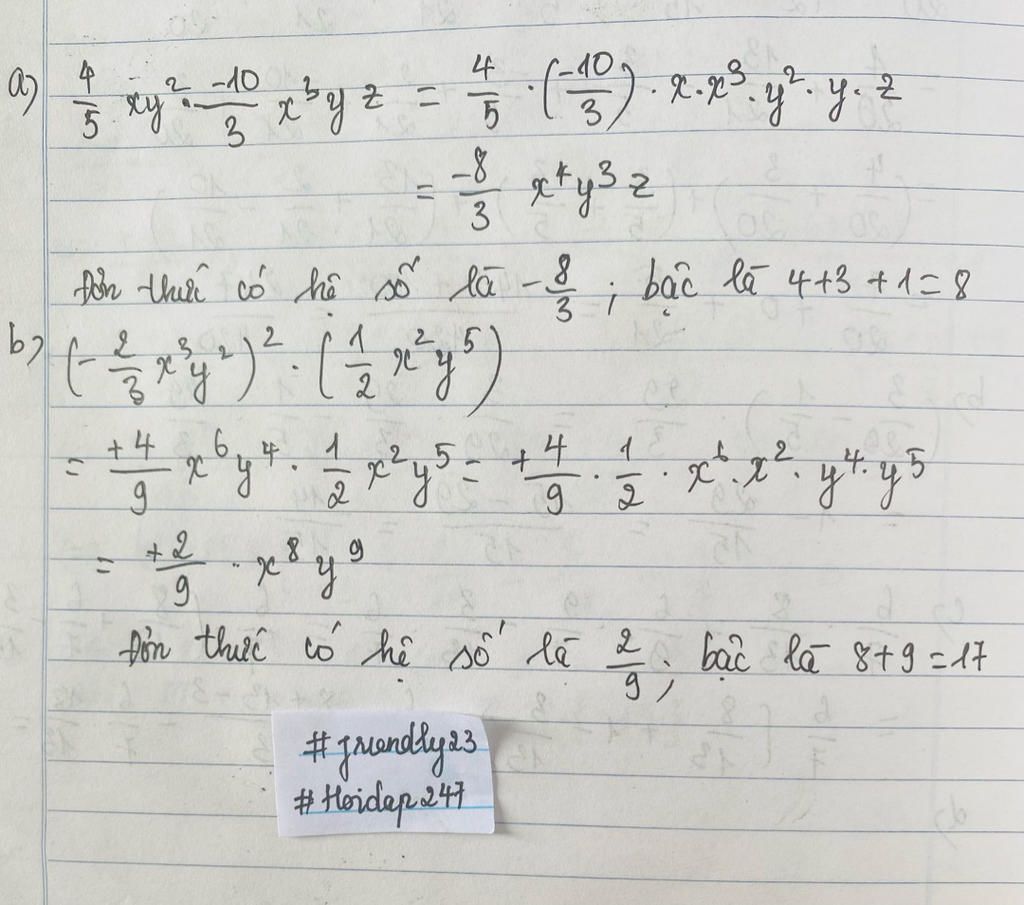 a) 4/5 xy² · -10/3 x³y z = 4/5 · (-10/3) · x·x³·y²·y·z
= -8/3 x⁴y³z
Đơn thức có hệ số là -8/3; bậc là 4+3+1=8
b) (-2/3 x³y²)² · (1/2 x²y⁵)
= +4/9 x⁶y⁴ · 1/2 x²y⁵ = +4/9 · 1/2 · x⁶·x²·y⁴·y⁵
= +2/9 · x⁸y⁹
Đơn thức có hệ số là 2/9; bậc là 8+9=17
#friendly23
#Hoidap247